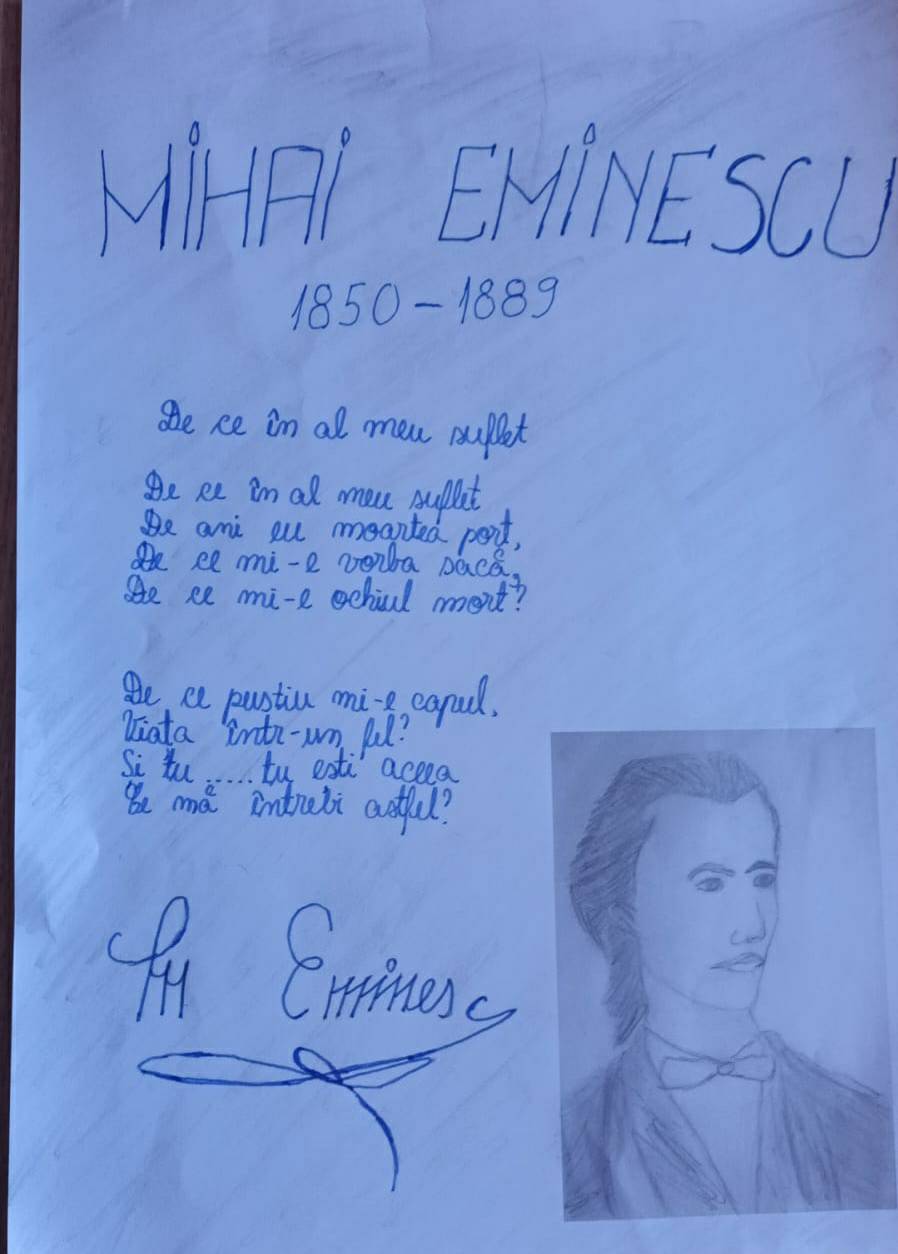 MIHAI EMINESCU
1850-1889
De ce în al meu suflet
De ce în al meu suflet
De ani eu moartea port,
De ce mi-e vorba sacă,
De ce mi-e ochiul mort?
De ce pustiu mi-e capul,
Viata într-un fel?
Si tu .....tu esti aceea
Ce mă întrebi astfel?
M Eminesc